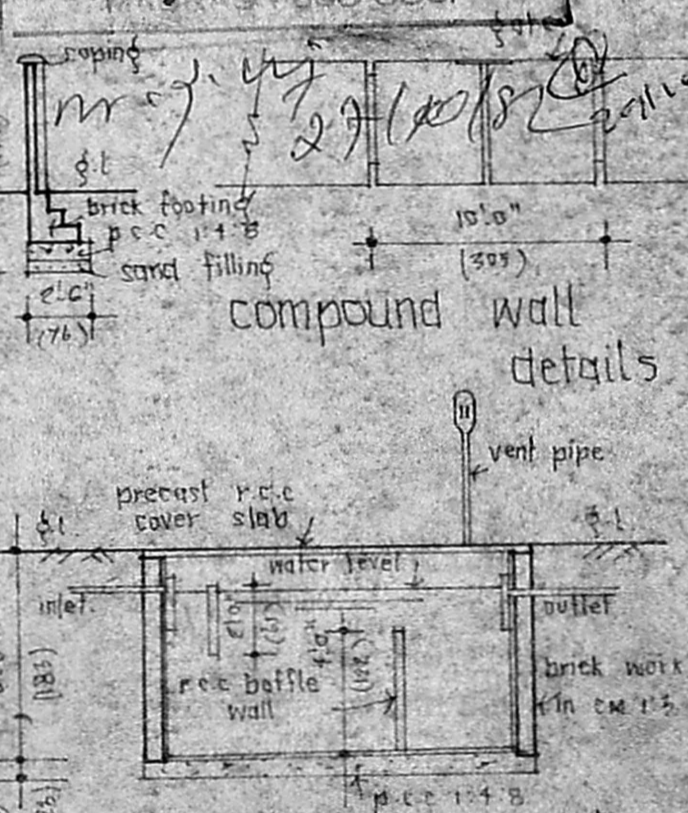 coping
gate
g.l
brick footing
p c c 1:4:8
sand filling
2'6"
(76)
10'0"
(305)
compound wall
details
vent pipe
precast r.c.c
cover slab
g.l
g.l
water level
inlet
outlet
2'0"
4'0"
(122)
(183)
r c c baffle
wall
brick work
in cm 1:5
p c c 1:4:8